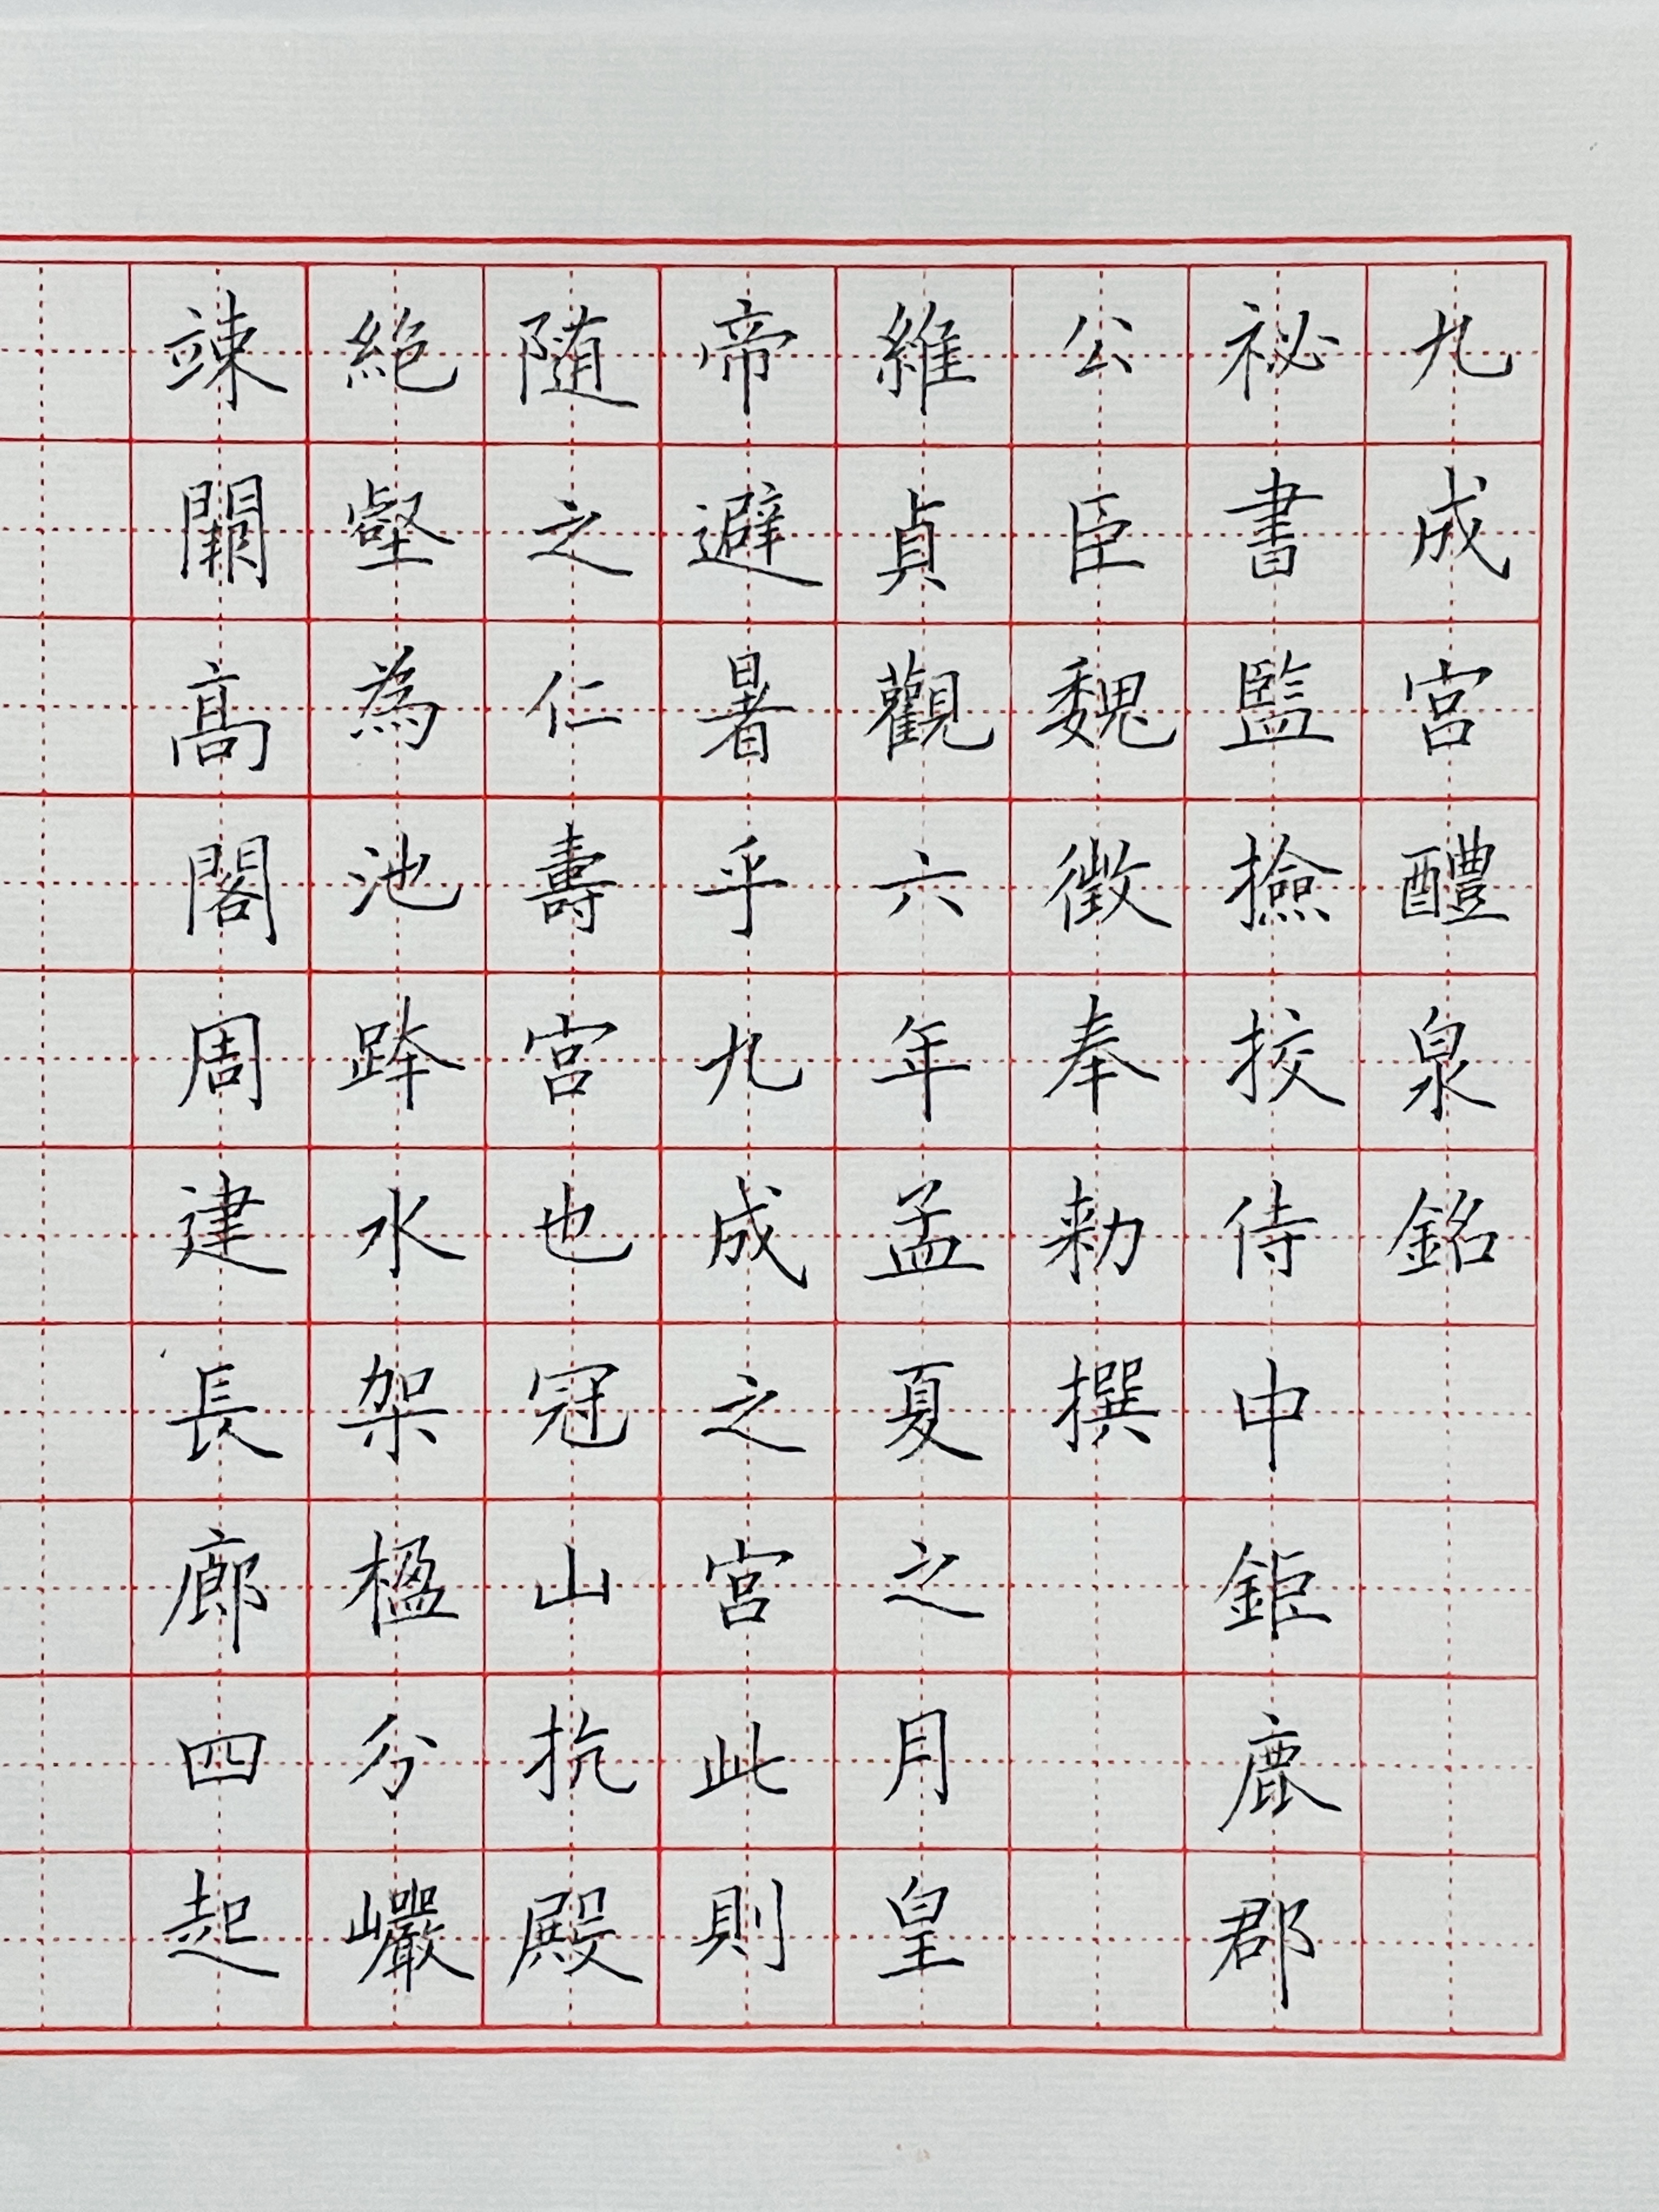 九成宮醴泉銘
祕書監撿挍侍中鉅鹿郡
公臣魏徵奉勑撰
維貞觀六年孟夏之月皇
帝避暑乎九成之宮此則
随之仁壽宮也冠山抗殿
絶壑為池跨水架楹分巗
竦闕高閣周建長廊四起